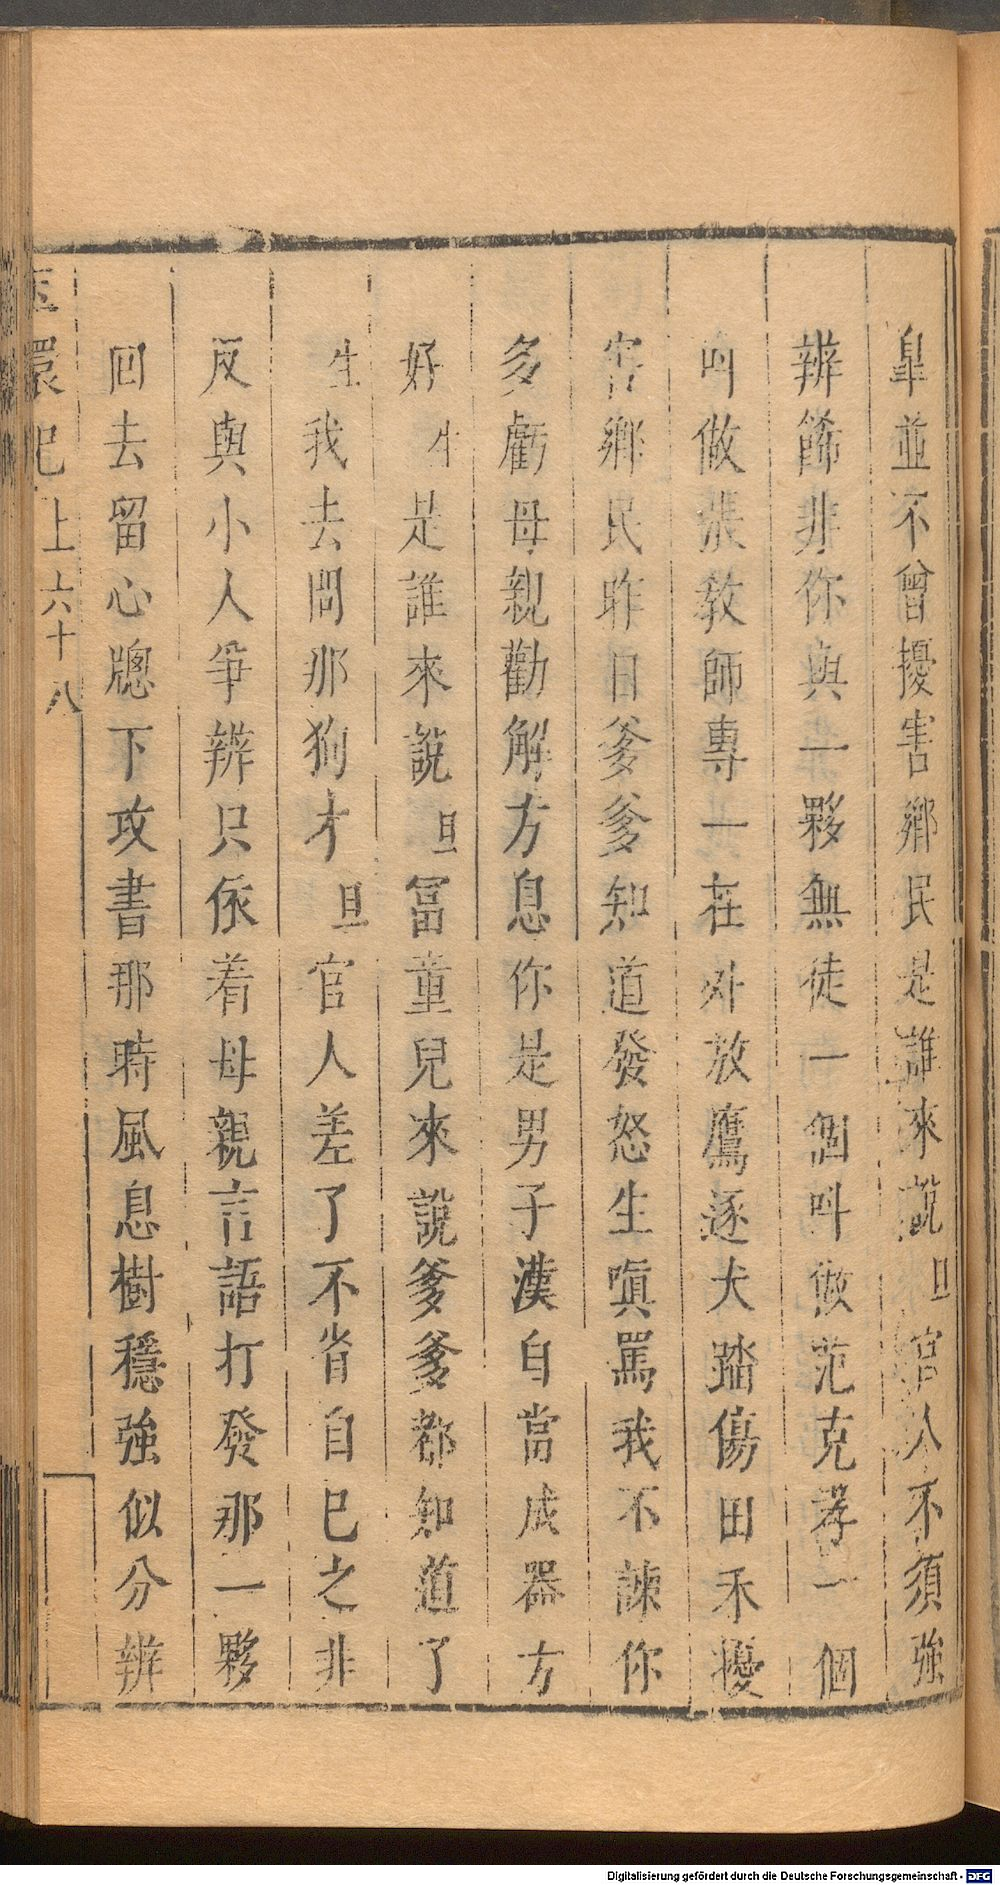 皐並不曾擾害鄉民是誰來說旦官人不須強
辨餙非你與一夥無徒一個呌做范克孝一個
呌做張教師專一在外放鷹逐犬踏傷田禾擾
害鄉民昨日爹爹知道發怒生嗔罵我不諫你
多虧母親勸解方息你是男子漢自當成器方
好生是誰來說旦冨童兒來說爹爹都知道了
生我去問那狗才旦官人差了不省自己之非
反與小人爭辨只依着母親言語打發那一夥
囘去留心牕下攻書那時風息樹穩強似分辨
玉環記上六十八
Digitalisierung gefördert durch die Deutsche Forschungsgemeinschaft - DFG